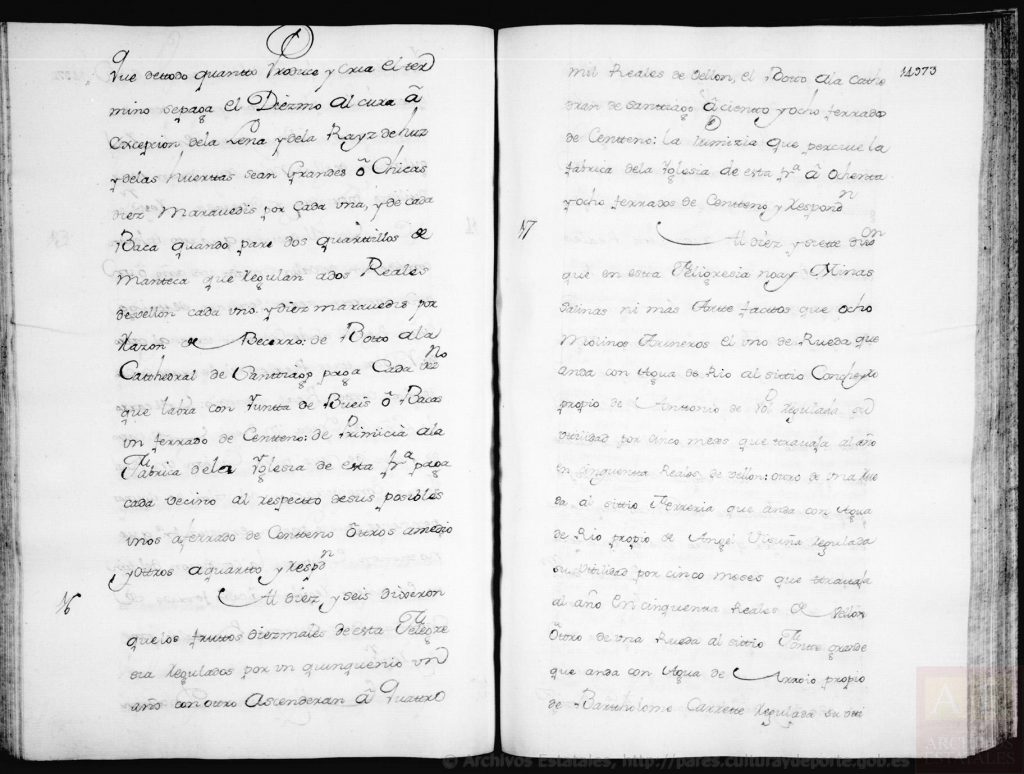 que detodo quantto Produce y Cria el ter
mino sepaga el Diezmo al cura â
Excepcion dela Leña y dela Rayz de
y delas huerttas sean Grandes ô Chicas
diez Maravedis por Cada vna, y de cada
Baca quando pare dos quarttillos de
Manteca que Regulan ados Reales
de vellon cada vno y diez maravedis por
Razon de Becerro: de Botto ala
Catthedral de Santtiago paga Cada vez no
que labra con Juntta de Bueis ô Bacas
vn ferrado de Centteno: de Primicia ala
Fabrica dela Yglesia de esta fra paga
cada vecino al respecto desus posibles
vnos aferrado de Centteno ôttros amedio
y ottros aquartto y respdn
16 Al diez y seis dixeron
quelos fruttos diezmales de esta Felegre
sia Regulados por vn quinquenio vn
año con ottro Ascenderan â Quattro
14373
mil Reales de vellon, el Botto ala Cathe
dral de Santtiago â ciento y ocho ferrados
de Centteno: la Primizia que percive la
fabrica dela Yglesia de esta fra â ochenta
y ocho ferrados de Centteno y Respondn
17 Al diez y siette dixon
que en estta Feligresia no ay Minas
Salinas ni màs Artte facttos que ocho
Molinos Arineros el vno de Rueda que
anda con Agua de Rio al sittio
propio de Anttonio de Regulada su
Vttilidad por cinco meses que travaja al año
En cinquentta Reales de vellon: ottro de vna Rue
da al sittio Ferreria que anda con Agua
de Rio propio de Angel Vicuña Regulada
su Vttilidad por cinco meses que ttravaja
al año En cinquentta Reales de vellon
Ôttro de vna Rueda al sittio Fontte grande
que anda con Agua de Arroio propio
de Bartholome Carrette Regulada su vtti
© Archivos Estatales, http://pares.culturaydeporte.gob.es
ARCHIVOS
ESTATALES